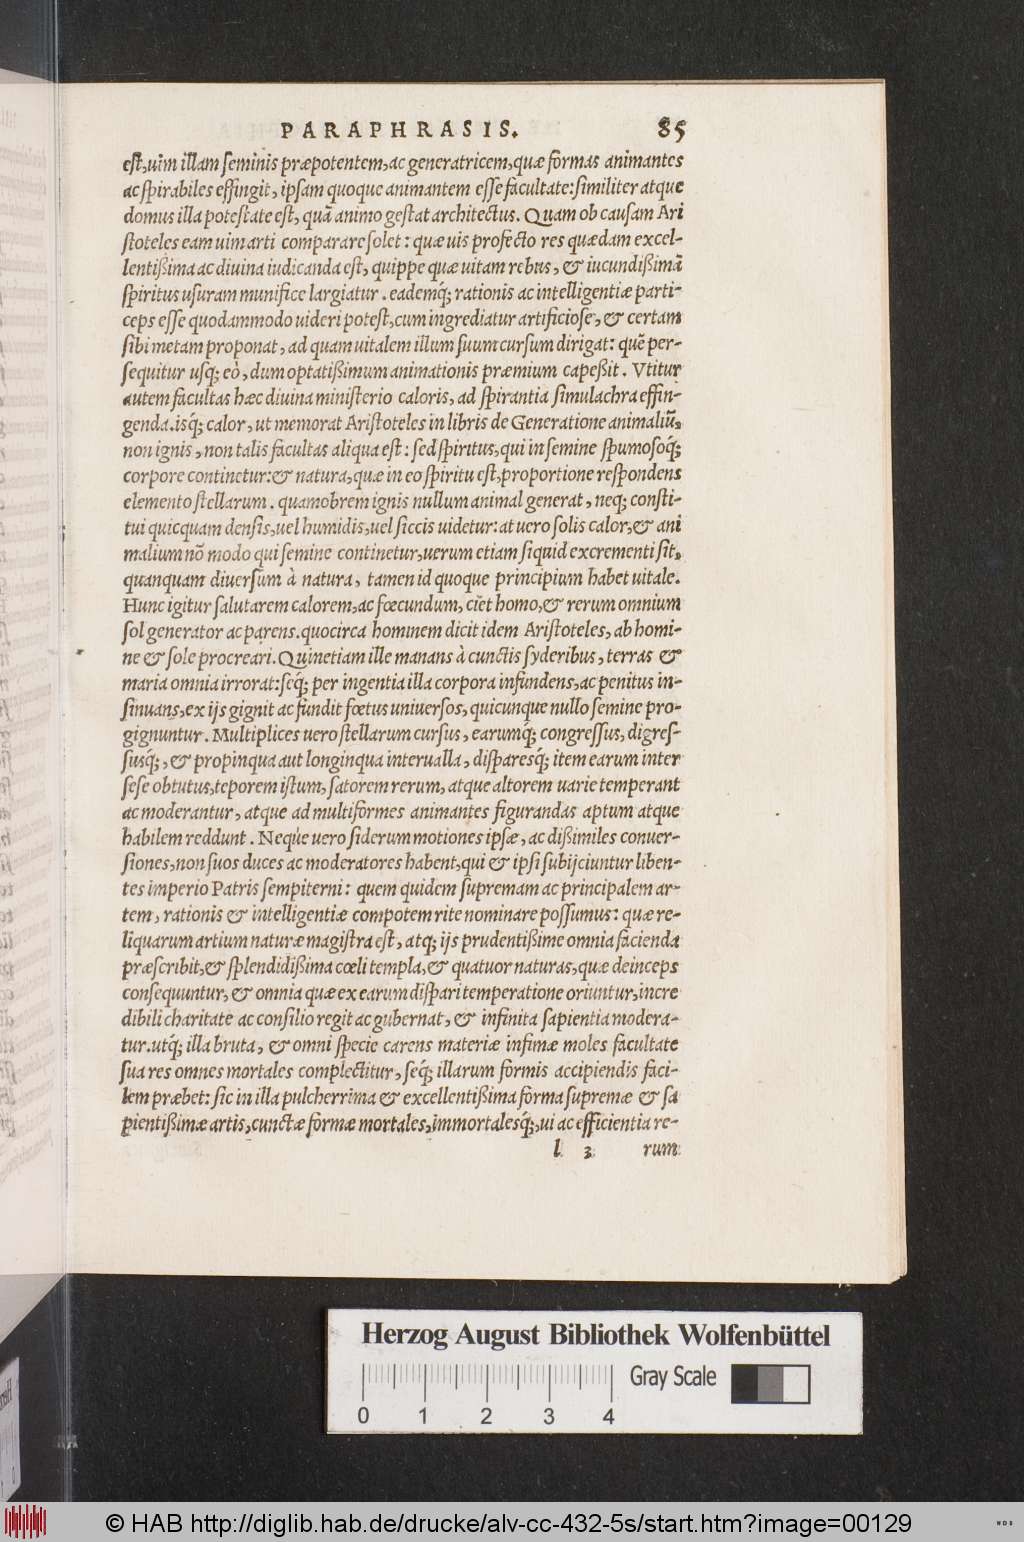 PARAPHRASIS. 85
est, uim illam seminis præpotentem, ac generatricem, quæ formas animantes
ac spirabiles effingit, ipsam quoque animantem esse facultate: similiter atque
domus illa potestate est, quā animo gestat architectus. Quam ob causam Ari
stoteles eam uim arti comparare solet: quæ uis profecto res quædam excel-
lentißima ac diuina iudicanda est, quippe quæ uitam rebus, & iucundißimā
spiritus usuram munifice largiatur. eademq́; rationis ac intelligentiæ parti-
ceps esse quodammodo uideri potest, cum ingrediatur artificiose, & certam
sibi metam proponat, ad quam uitalem illum suum cursum dirigat: quē per-
sequitur usq; eò, dum optatißimum animationis præmium capeßit. Vtitur
autem facultas hæc diuina ministerio caloris, ad spirantia simulachra effin-
genda. isq́; calor, ut memorat Aristoteles in libris de Generatione animaliū,
non ignis, non talis facultas aliqua est: sed spiritus, qui in semine spumosoq́;
corpore continetur: & natura, quæ in eo spiritu est, proportione respondens
elemento stellarum. quamobrem ignis nullum animal generat, neq; consti-
tui quicquam densis, uel humidis, uel siccis uidetur: at uero solis calor, & ani
malium nō modo qui semine continetur, uerum etiam si quid excrementi sit,
quanquam diuersum à natura, tamen id quoque principium habet uitale.
Hunc igitur salutarem calorem, ac fœcundum, ciet homo, & rerum omnium
sol generator ac parens. quocirca hominem dicit idem Aristoteles, ab homi-
ne & sole procreari. Quinetiam ille manans à cunctis syderibus, terras &
maria omnia irrorat: seq́; per ingentia illa corpora infundens, ac penitus in-
sinuans, ex ijs gignit ac fundit fœtus uniuersos, quicunque nullo semine pro-
gignuntur. Multiplices uero stellarum cursus, earumq́; congressus, digres-
susq́;, & propinqua aut longinqua interualla, disparesq́; item earum inter
sese obtutus, teporem istum, satorem rerum, atque altorem uarie temperant
ac moderantur, atque ad multiformes animantes figurandas aptum atque
habilem reddunt. Neque uero siderum motiones ipsæ, ac dißimiles conuer-
siones, non suos duces ac moderatores habent, qui & ipsi subijciuntur liben-
tes imperio Patris sempiterni: quem quidem supremam ac principalem ar-
tem, rationis & intelligentiæ compotem rite nominare possumus: quæ re-
liquarum artium naturæ magistra est, atq; ijs prudentißime omnia facienda
præscribit, & splendidißima cœli templa, & quatuor naturas, quæ deinceps
consequuntur, & omnia quæ ex earum dispari temperatione oriuntur, incre
dibili charitate ac consilio regit ac gubernat, & infinita sapientia modera-
tur. utq́; illa bruta, & omni specie carens materiæ infimæ moles facultate
sua res omnes mortales complectitur, seq́; illarum formis accipiendis faci-
lem præbet: sic in illa pulcherrima & excellentißima forma supremæ & sa
pientißimæ artis, cunctæ formæ mortales, immortalesq́;, ui ac efficientia re-
l 3 rum
Herzog August Bibliothek Wolfenbüttel
Gray Scale
0 1 2 3 4
© HAB http://diglib.hab.de/drucke/alv-cc-432-5s/start.htm?image=00129